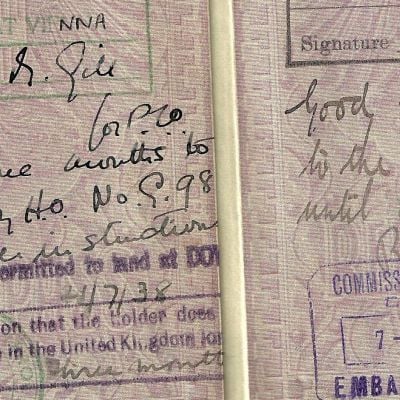 AT VIENNA
D. Gill
for P.C.O.
months to
H.O. No. G. 98
instructions
ermitted to land at DOV
24/7/38
on that the holder does
e in the United Kingdom lon
three month
Signature
Good
to the
until
COMMISS
7-
EMBA